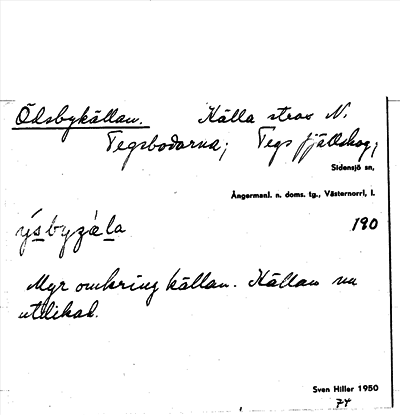 Ödsbykällan. Källa strax N.
Tegsbodarna; Tegs fjällskog;
Sidensjö sn,
Ångermanl. n. doms. tg., Västernorrl, l.
ýsbyzàla 190
Myr omkring källan. Källan nu
utdikad.
Sven Hiller 1950
74